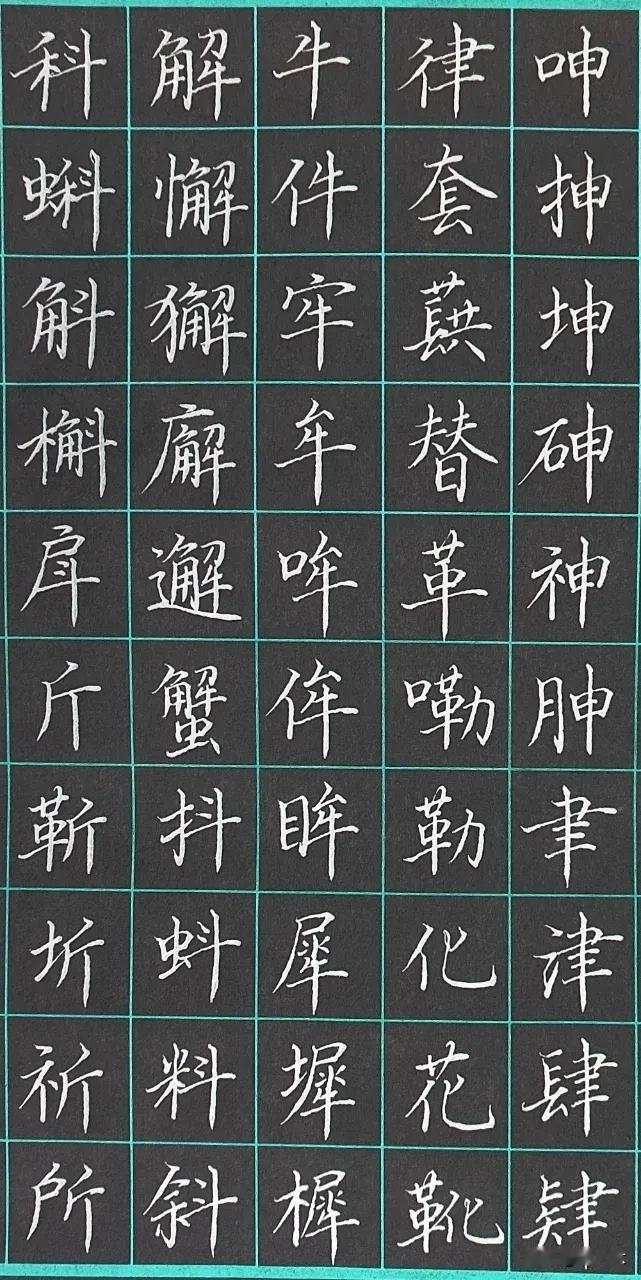 呻抻坤砷神胂聿津肆肄
律套蕻替革嘞勒化花靴
牛件牢牟哞侔眸犀墀樨
解懈獬廨邂蟹抖蚪料斜
科蝌斛槲戽斤靳圻祈所